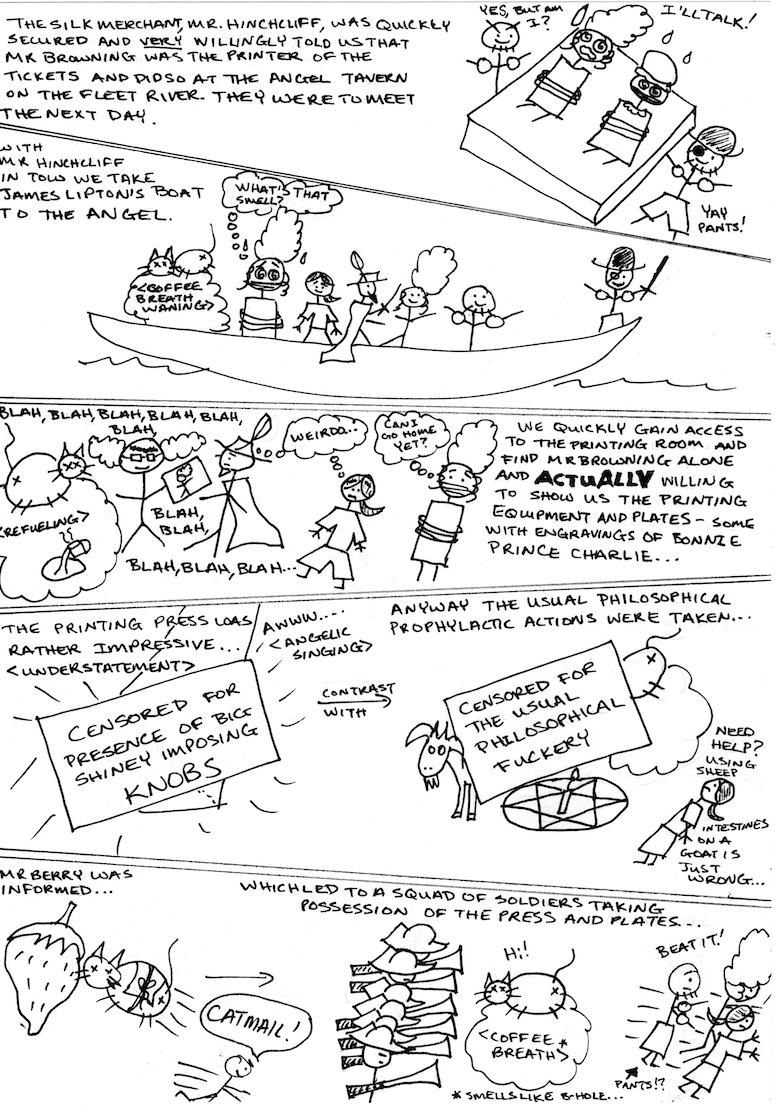 THE SILK MERCHANT, MR. HINCHCLIFF, WAS QUICKLY
SECURED AND VERY WILLINGLY TOLD US THAT
MR BROWNING WAS THE PRINTER OF THE
TICKETS AND DID SO AT THE ANGEL TAVERN
ON THE FLEET RIVER. THEY WERE TO MEET
THE NEXT DAY.
YES, BUT AM
I?
I'LL TALK!
YAY
PANTS!
WITH
MR HINCHCLIFF
IN TOW WE TAKE
JAMES LIPTON'S BOAT
TO THE ANGEL.
WHAT'S THAT
SMELL?
<COFFEE
BREATH
WANING>
BLAH, BLAH, BLAH, BLAH, BLAH,
BLAH,
<REFUELING>
BLAH,
BLAH,
BLAH, BLAH, BLAH...
WEIRDO...
CAN I
GO HOME
YET?
WE QUICKLY GAIN ACCESS
TO THE PRINTING ROOM AND
FIND MR BROWNING ALONE
AND ACTUALLY WILLING
TO SHOW US THE PRINTING
EQUIPMENT AND PLATES - SOME
WITH ENGRAVINGS OF BONNIE
PRINCE CHARLIE...
THE PRINTING PRESS WAS
RATHER IMPRESSIVE...
<UNDERSTATEMENT>
AWWW....
<ANGELIC
SINGING>
CENSORED FOR
PRESENCE OF BIG
SHINEY IMPOSING
KNOBS
CONTRAST
WITH
ANYWAY THE USUAL PHILOSOPHICAL
PROPHYLACTIC ACTIONS WERE TAKEN...
CENSORED FOR
THE USUAL
PHILOSOPHICAL
FUCKERY
NEED
HELP?
USING
SHEEP
INTESTINES
ON A
GOAT IS
JUST
WRONG...
MR BERRY WAS
INFORMED...
CATMAIL!
WHICH LED TO A SQUAD OF SOLDIERS TAKING
POSSESSION OF THE PRESS AND PLATES...
HI!
<COFFEE *
BREATH>
* SMELLS LIKE B-HOLE...
BEAT IT!
PANTS!?